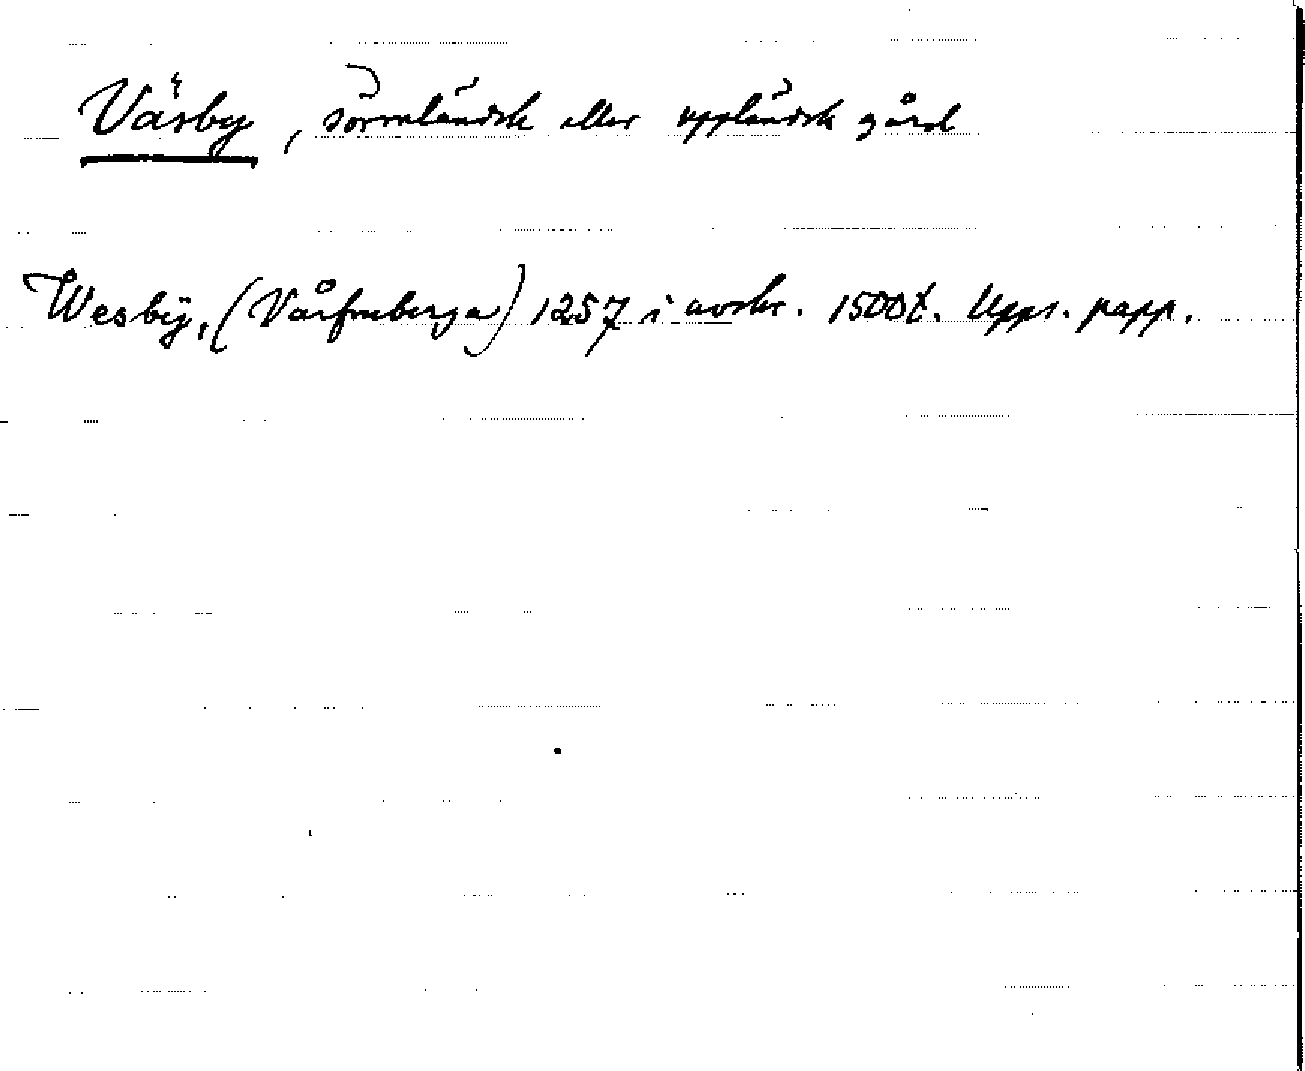 Väsby, sörmländsk eller uppländsk gård
Wesbÿ, (Vårfruberga) 1257 i avskr. 1500t. Upps. papp.